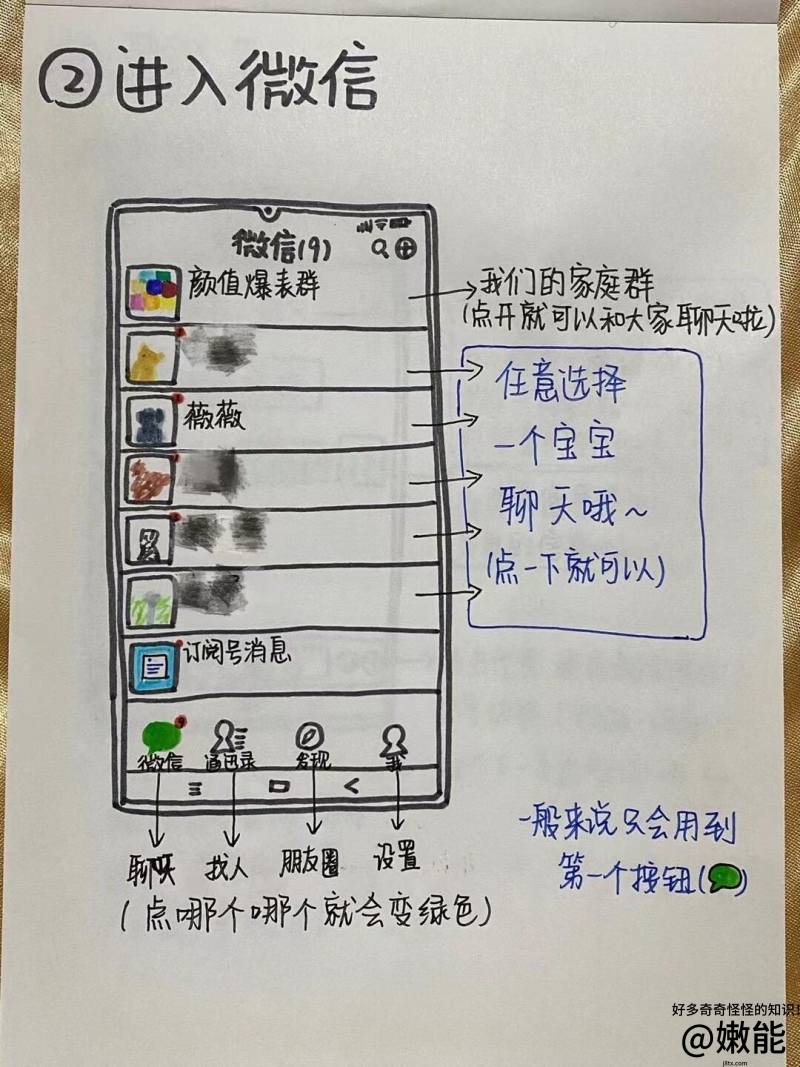 ②进入微信
微信(9)
颜值爆表群
我们的家庭群
(点开就可以和大家聊天啦)
薇薇
任意选择
一个宝宝
聊天哦~
(点一下就可以)
订阅号消息
9
微信 通讯录 发现 我
聊天 找人 朋友圈 设置
(点哪个哪个就会变绿色)
一般来说只会用到
第一个按钮( )
好多奇奇怪怪的知识
@嫩能
jlltx.com